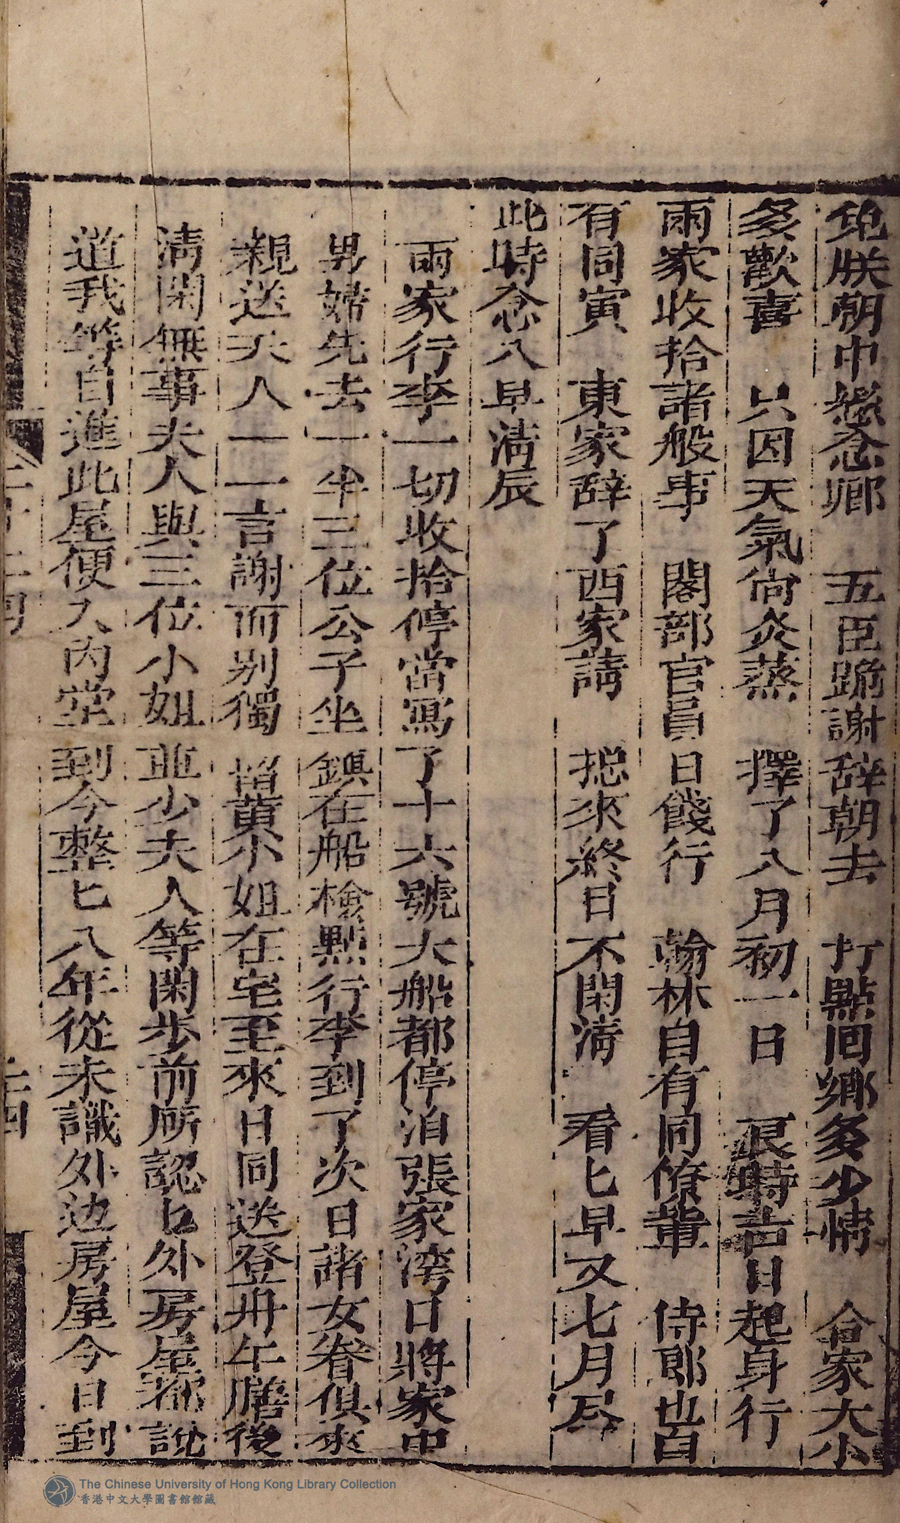 免朕朝中懸念卿 五臣跪謝辞朝去 打點囘鄉多少情 合家大小
多歡喜 只因天氣尚炎蒸 擇了八月初一日 良時吉日起身行
兩家收拾諸般事 閣部官員日餞行 翰林自有同僚輩 侍郎也自
有同寅 東家辞了西家請 摠來終日不閑清 看匕早又七月尽
此時念八早清辰
兩家行李一切收拾停當寫了十六號大船都停泊張家湾口將家中
男婦先去一半三位公子坐鎮在船檢點行李到了次日諸女眷俱來
親送夫人一一言謝而别獨留黄小姐在宅至來日同送登舟午膳後
清閑無事夫人與三位小姐並少夫人等閑步前所認匕外房屋都說
道我等自進此屋便入内堂到今整匕八年從未識外边房屋今日到
二十四
The Chinese University of Hong Kong Library Collection
香港中文大學圖書館館藏